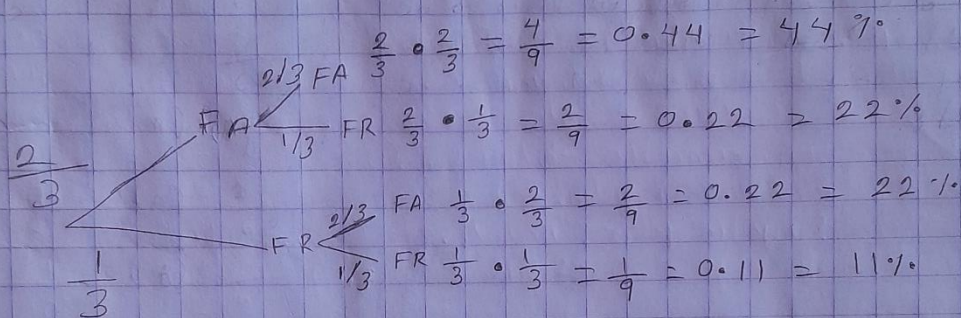 2/3 FA 2/3 • 2/3 = 4/9 = 0.44 = 44%
FA 1/3 FR 2/3 • 1/3 = 2/9 = 0.22 = 22%
2/3
2/3 FA 1/3 • 2/3 = 2/9 = 0.22 = 22%
FR 1/3 FR 1/3 • 1/3 = 1/9 = 0.11 = 11%
1/3